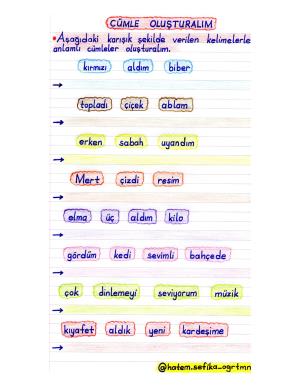 CÜMLE OLUŞTURALIM
• Aşağıdaki karışık şekilde verilen kelimelerle
anlamlı cümleler oluşturalım.
kırmızı aldım biber
→
topladı çiçek ablam
→
erken sabah uyandım
→
Mert çizdi resim
→
elma üç aldım kilo
→
gördüm kedi sevimli bahçede
→
çok dinlemeyi seviyorum müzik
→
kıyafet aldık yeni kardeşime
→
@hatem.sefika_ogrtmn